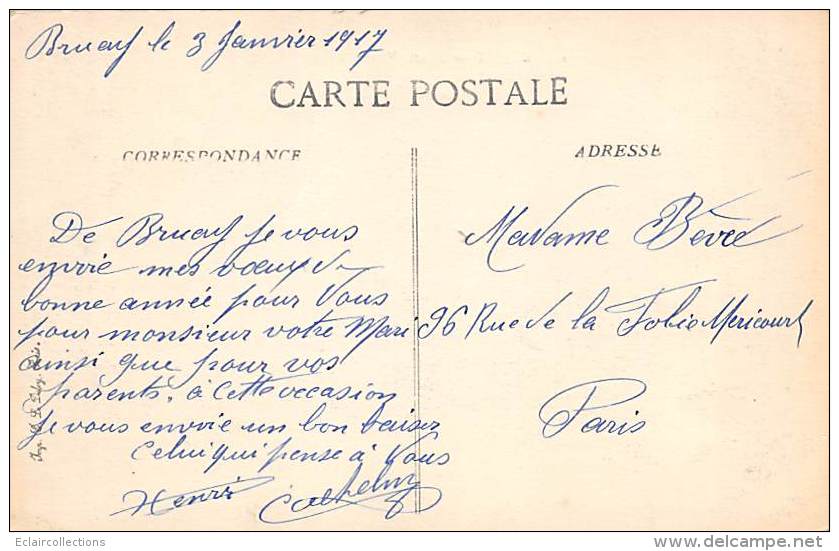 Bruay le 3 Janvier 1917
CARTE POSTALE
CORRESPONDANCE
ADRESSE
De Bruay Je vous
envoie mes vœux de
bonne année pour Vous
pour monsieur votre Mari
ainsi que pour vos
parents. à cette occasion
Je vous envoie un bon baiser
Celui qui pense à Vous
Henri
Madame
96 Rue de la Folie Mericourt
Paris
Eclaircollections
delcampe.net